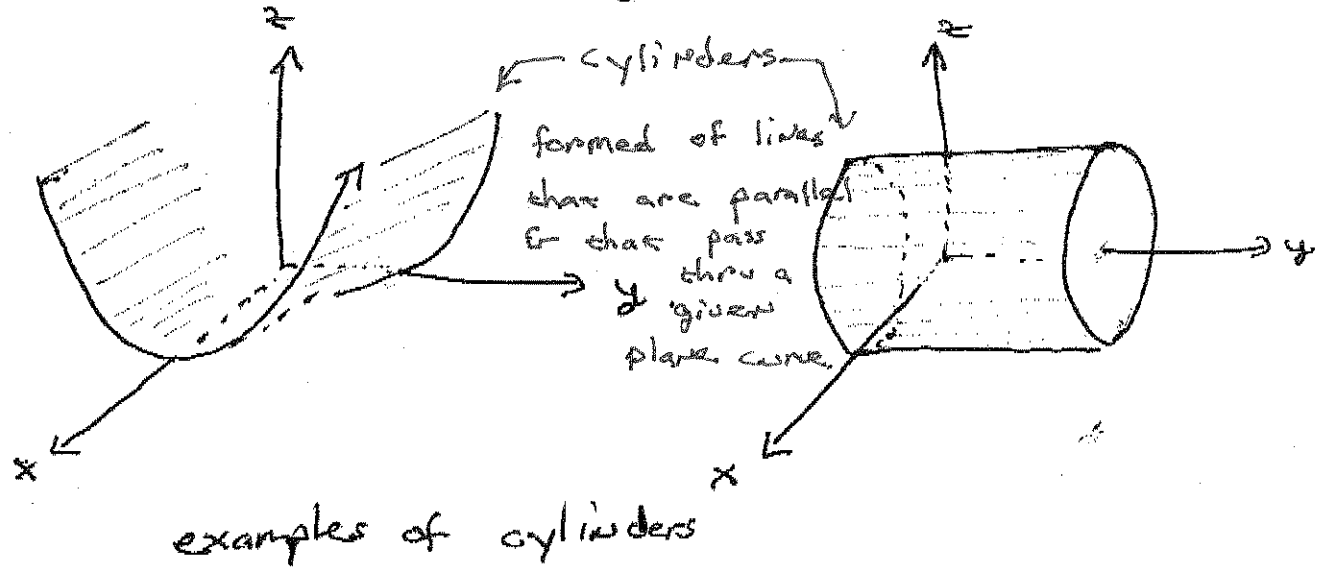 z
z
cylinders
formed of lines
that are parallel
& that pass
thru a
y
y
given
plane curve
x
x
examples of cylinders